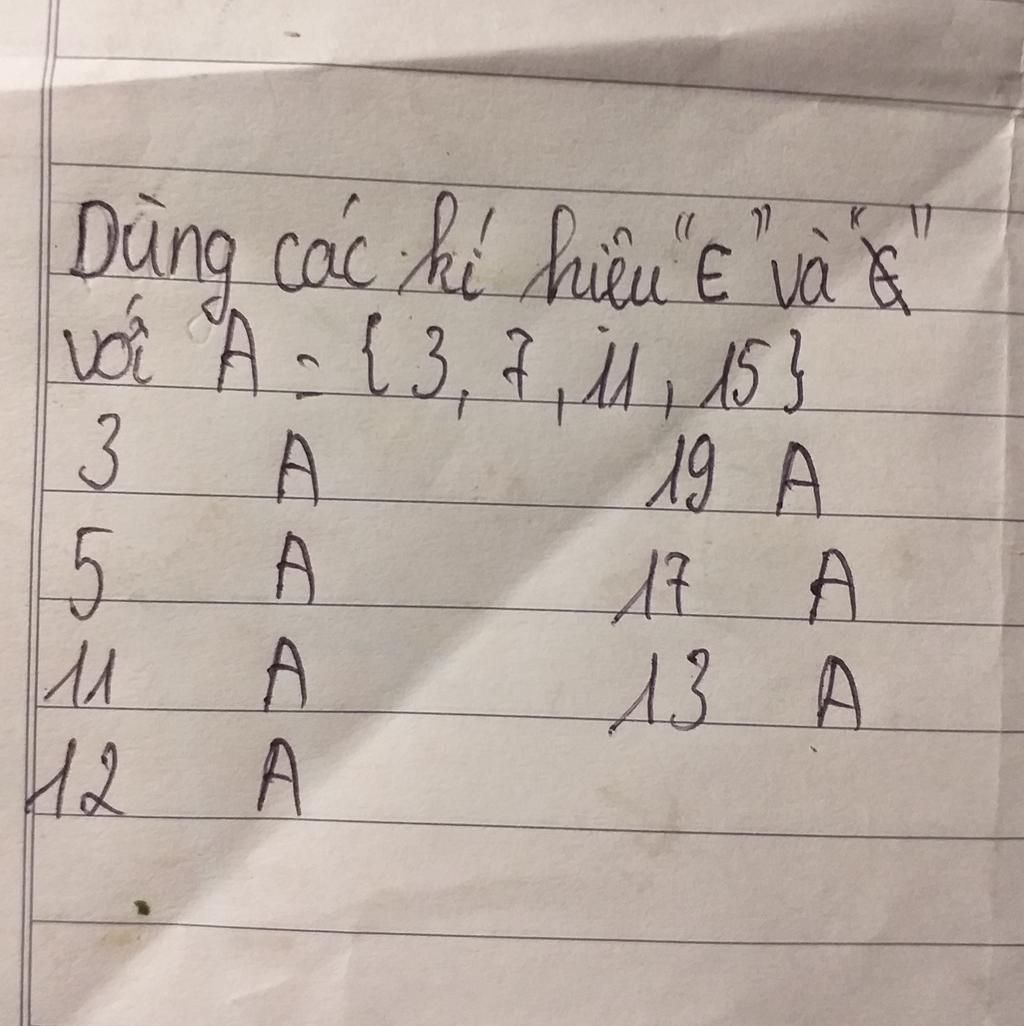 Dùng các kí hiệu "∈" và "∉"
với A = { 3, 7, 11, 15}
3 A 19 A
5 A 17 A
11 A 13 A
12 A